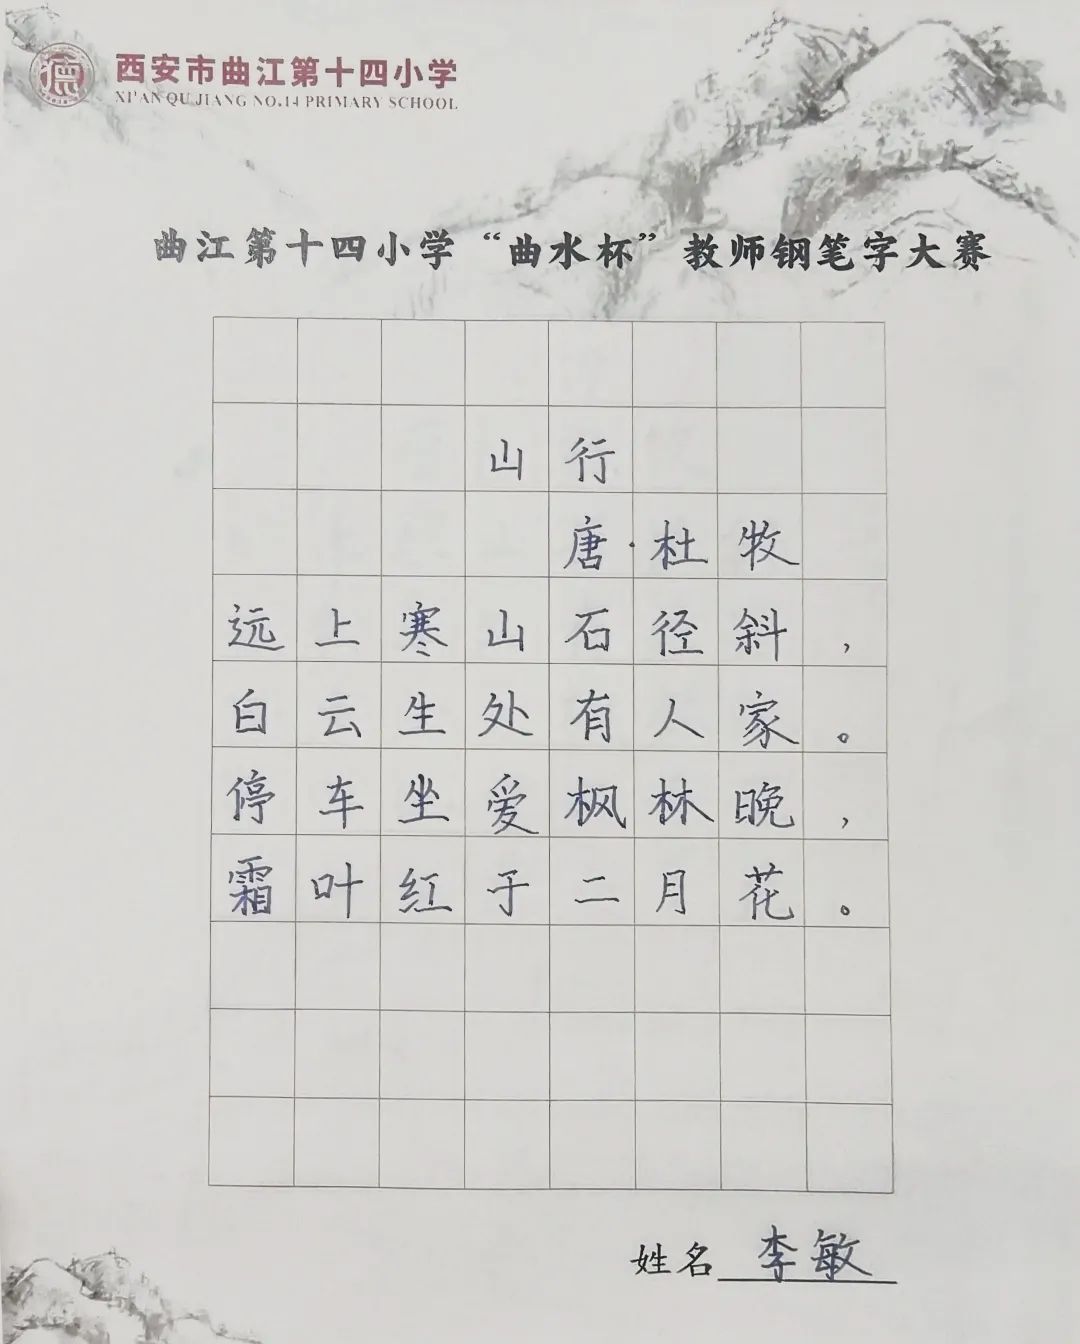 德
西安市曲江第十四小学
XI'AN QU JIANG NO.14 PRIMARY SCHOOL
曲江第十四小学“曲水杯”教师钢笔字大赛
山行
唐·杜牧
远上寒山石径斜，
白云生处有人家。
停车坐爱枫林晚，
霜叶红于二月花。
姓名 李敏